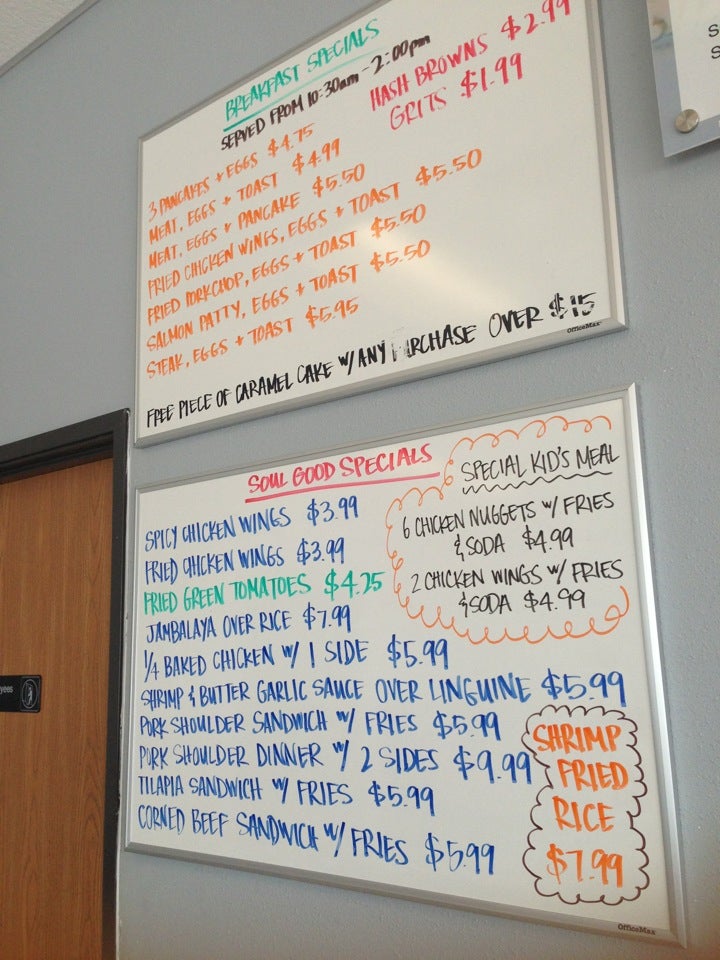 BREAKFAST SPECIALS
SERVED FROM 10:30am - 2:00pm
HASH BROWNS $2.99
GRITS $1.99
3 PANCAKES + EGGS $4.75
MEAT, EGGS + TOAST $4.99
MEAT, EGGS + PANCAKE $5.50
FRIED CHICKEN WINGS, EGGS + TOAST $5.50
FRIED PORKCHOP, EGGS + TOAST $5.50
SALMON PATTY, EGGS + TOAST $5.50
STEAK, EGGS + TOAST $5.95
FREE PIECE OF CARAMEL CAKE W/ ANY PURCHASE OVER $15
OfficeMax
SOUL GOOD SPECIALS
SPICY CHICKEN WINGS $3.99
FRIED CHICKEN WINGS $3.99
FRIED GREEN TOMATOES $4.25
JAMBALAYA OVER RICE $7.99
1/4 BAKED CHICKEN W/ 1 SIDE $5.99
SHRIMP & BUTTER GARLIC SAUCE OVER LINGUINE $5.99
PORK SHOULDER SANDWICH W/ FRIES $5.99
PORK SHOULDER DINNER W/ 2 SIDES $9.99
TILAPIA SANDWICH W/ FRIES $5.99
CORNED BEEF SANDWICH W/ FRIES $5.99
SPECIAL KID'S MEAL
6 CHICKEN NUGGETS W/ FRIES
& SODA $4.99
2 CHICKEN WINGS W/ FRIES
& SODA $4.99
SHRIMP
FRIED
RICE
$7.99
OfficeMax
yees
S
S